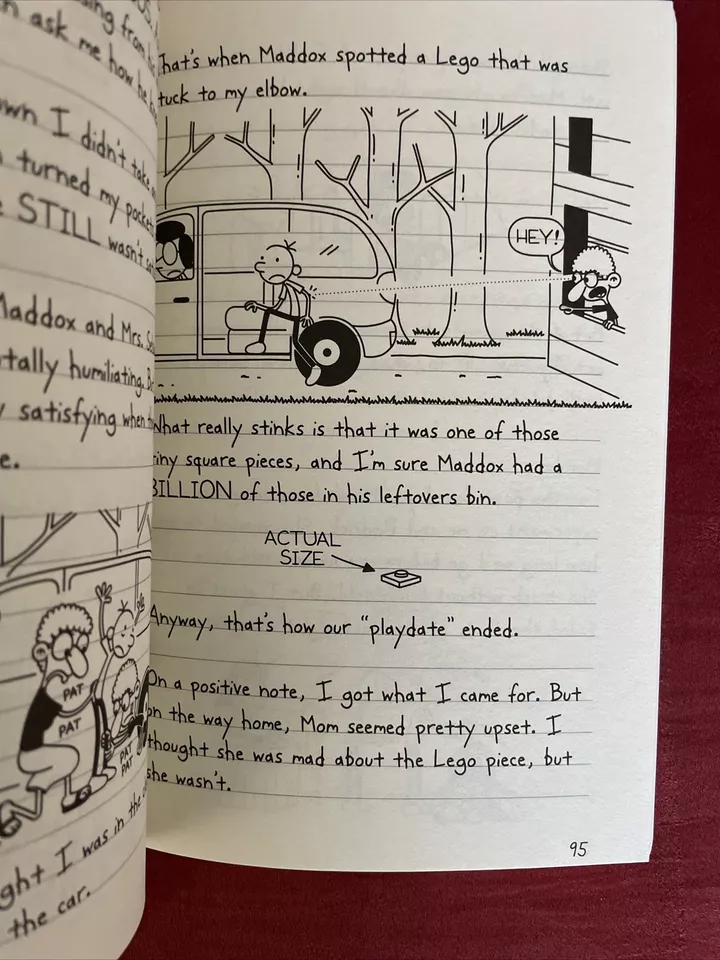 ing from
n ask me how he
own I didn't take
turned my pockets
STILL wasn't
Maddox and Mrs.
tally humiliating.
satisfying when
e.
PAT
PAT
PAT
PAT
ght I was in the
the car.
hat's when Maddox spotted a Lego that was
tuck to my elbow.
HEY!
What really stinks is that it was one of those
iny square pieces, and I'm sure Maddox had a
BILLION of those in his leftovers bin.
ACTUAL
SIZE
Anyway, that's how our "playdate" ended.
On a positive note, I got what I came for. But
on the way home, Mom seemed pretty upset. I
thought she was mad about the Lego piece, but
she wasn't.
95